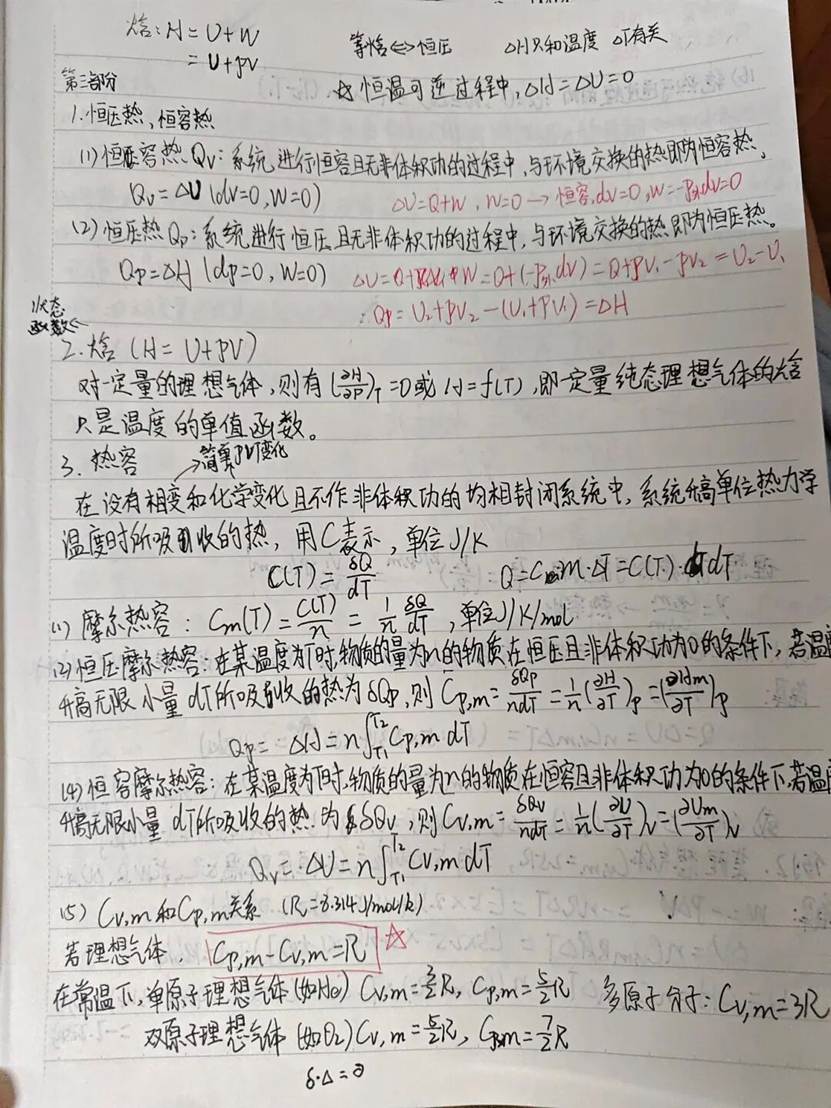 焓：H = U + W
= U + pV
等焓⇔恒压　△H只和温度 △T有关
☆ 恒温可逆过程中，△H = △U = 0
第三部分
1. 恒压热，恒容热
(1) 恒容热 Qv：系统进行恒容且无非体积功的过程中，与环境交换的热即为恒容热。
Qv = △U (dv=0, W=0)　△U=Q+W, W=0 → 恒容, dv=0, W=-P外dv=0
(2) 恒压热 Qp：系统进行恒压且无非体积功的过程中，与环境交换的热即为恒压热。
Qp = △H (dp=0, W=0)　△U=Q+W=Q+(-P外dv)=Q+pV₁-pV₂=U₂-U₁
∴ Qp=U₂+pV₂-(U₁+pV₁)=△H
状态
函数←
2. 焓 (H = U + pV)
对一定量的理想气体，则有(∂H/∂P)T=0或 H=f(T)，即一定量纯态理想气体的焓
只是温度的单值函数。
3. 热容　→简单PVT变化
在没有相变和化学变化且不作非体积功的均相封闭系统中，系统升高单位热力学
温度时所吸收的热，用C表示，单位 J/K
C(T) = δQ/dT　Q=C m·△T=C(T)·dT
(1) 摩尔热容：Cm(T) = C(T)/n = 1/n δQ/dT，单位J/K/mol
(2) 恒压摩尔热容：在某温度为T时，物质的量为n的物质在恒压且非体积功为0的条件下，若温度
升高无限小量 dT所吸收的热为δQp，则 Cp,m = δQp/ndT = 1/n(∂H/∂T)p = (∂Hm/∂T)p
Qp = △H = n∫T₁T₂ Cp,m dT
(4) 恒容摩尔热容：在某温度为T时，物质的量为n的物质在恒容且非体积功为0的条件下，若温度
升高无限小量 dT所吸收的热为δQv，则 Cv,m = δQv/ndT = 1/n(∂U/∂T)v = (∂Um/∂T)v
Qv = △U = n∫T₁T₂ Cv,m dT
(5) Cv,m 和 Cp,m关系 (R=8.314J/mol/k)
若理想气体，Cp,m - Cv,m = R ☆
在常温下，单原子理想气体(如He) Cv,m = 3/2R, Cp,m = 5/2R　多原子分子：Cv,m = 3R
双原子理想气体(如O₂) Cv,m = 5/2R, Cp,m = 7/2R
δ·△=∂